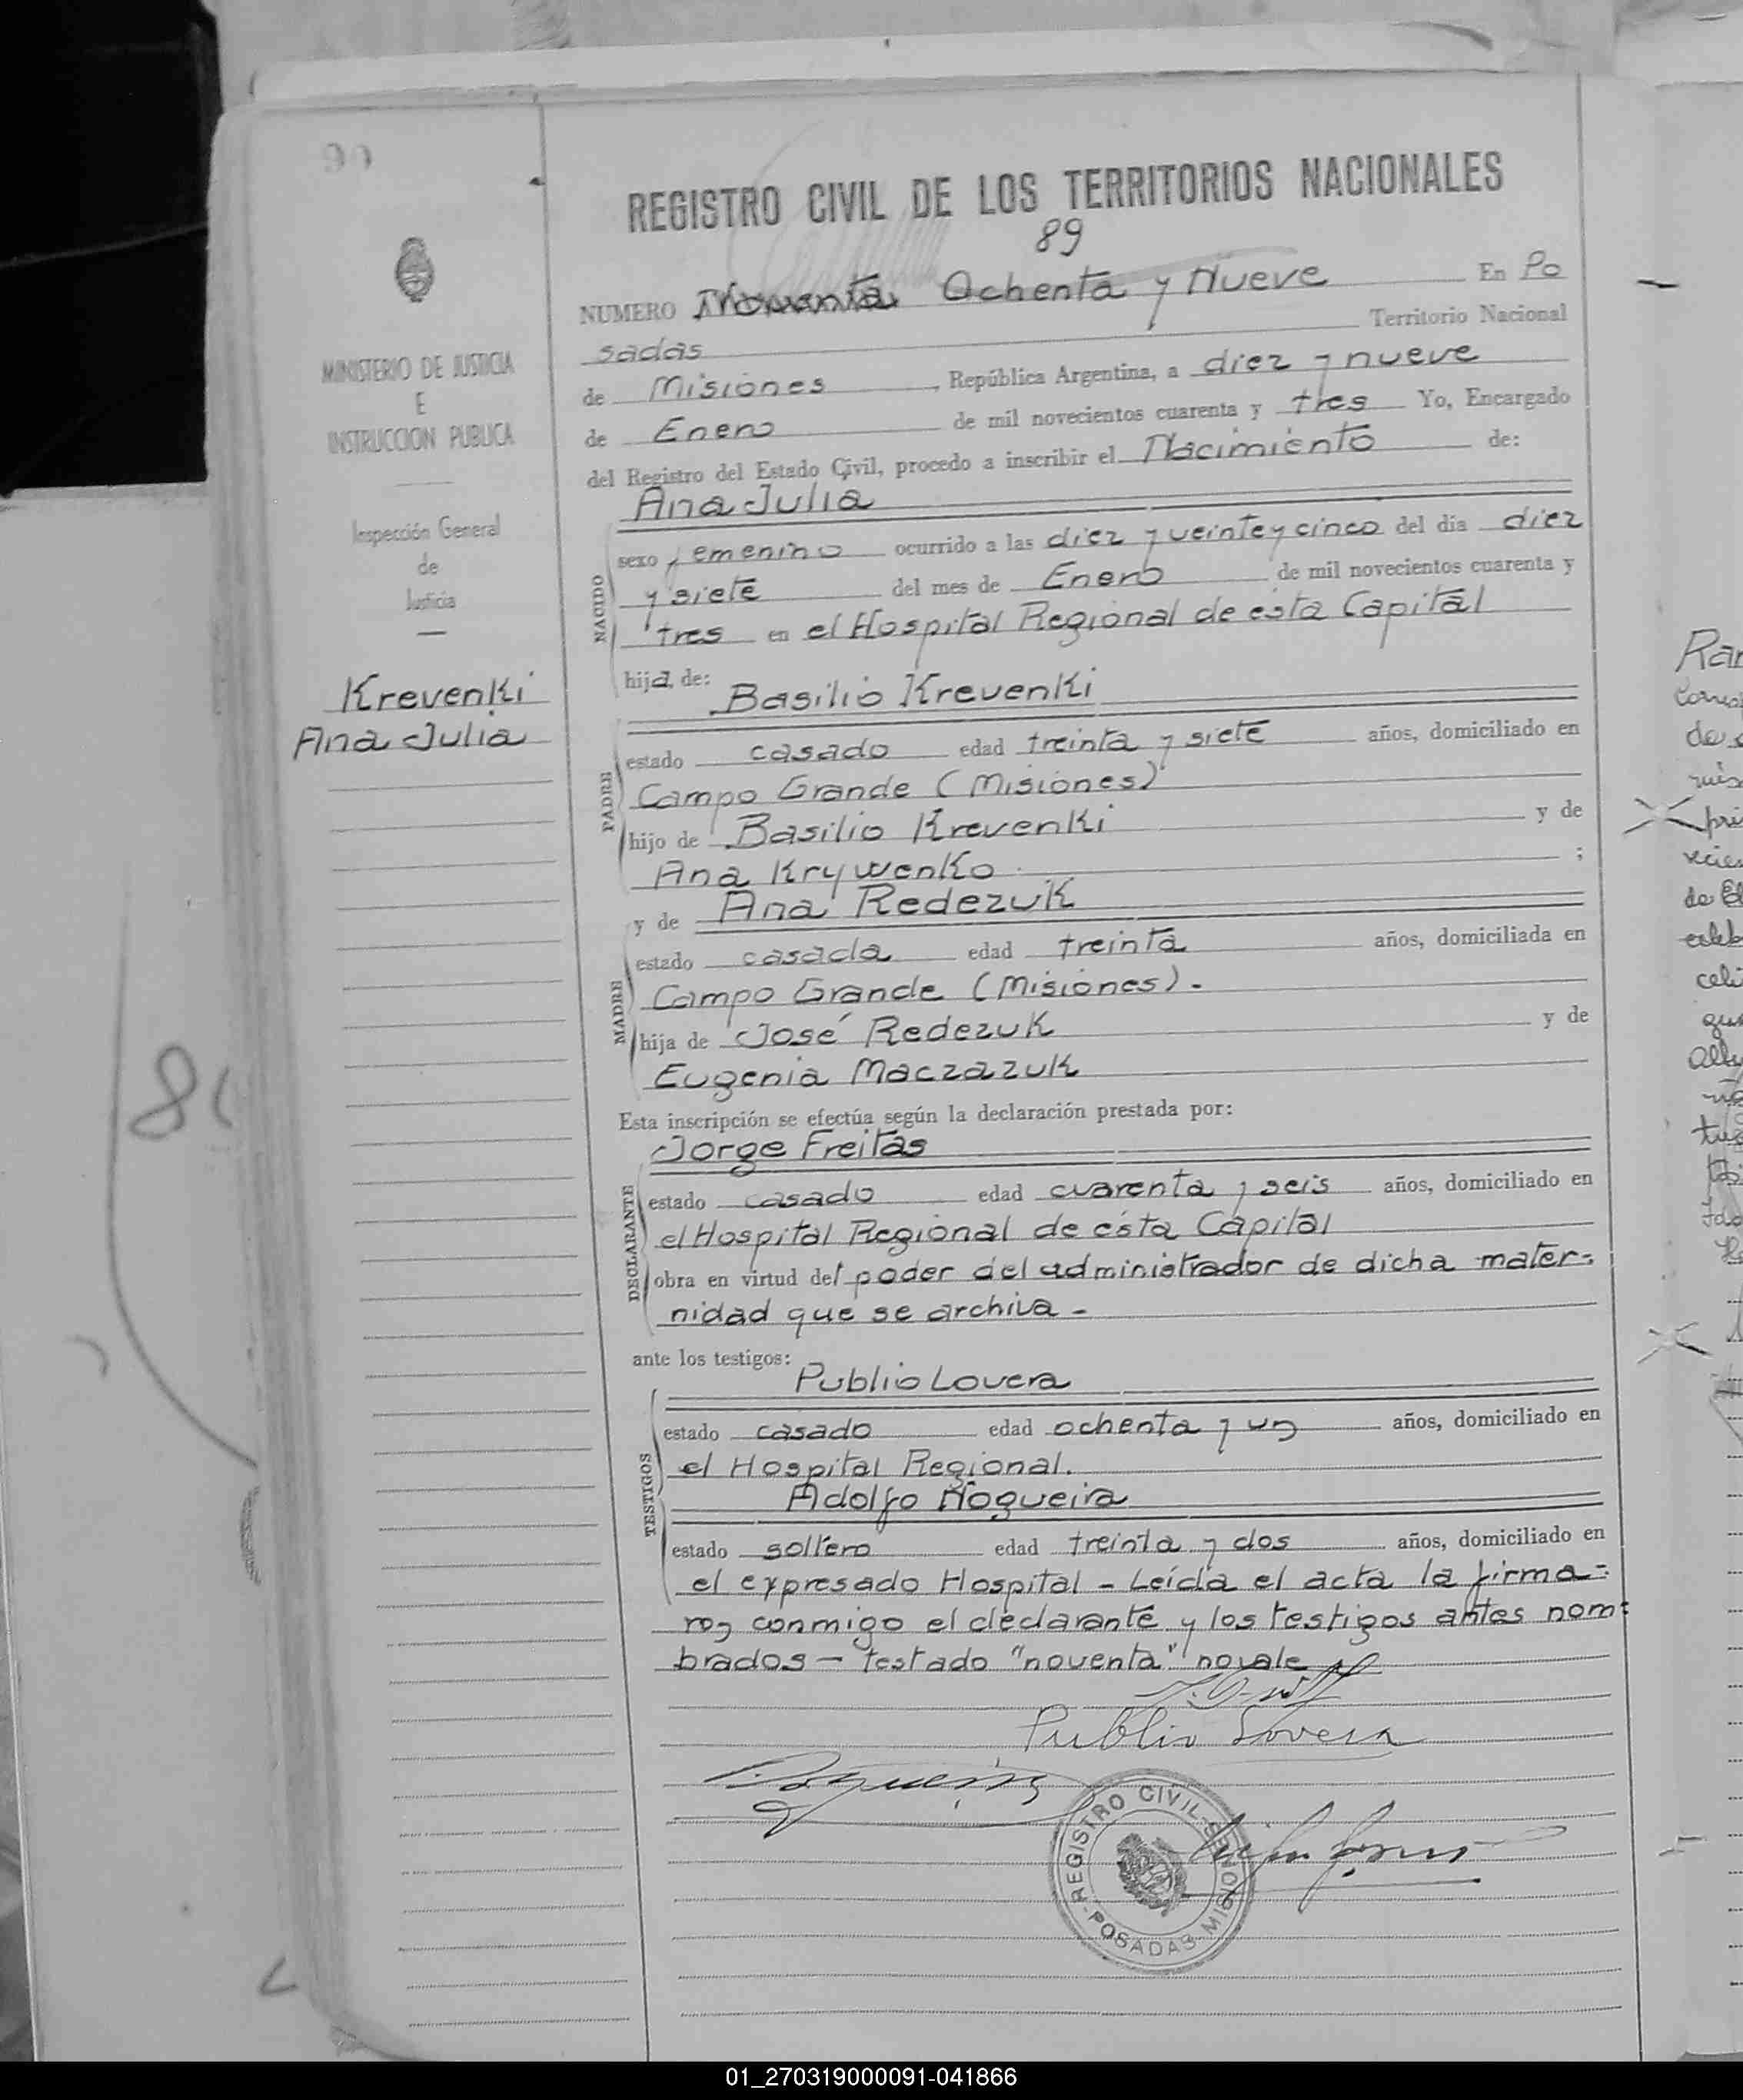 90
REGISTRO CIVIL DE LOS TERRITORIOS NACIONALES
89
NUMERO Noventa Ochenta y Nueve En Po
sadas Territorio Nacional
de Misiones, República Argentina, a diez y nueve
de Enero de mil novecientos cuarenta y tres Yo, Encargado
del Registro del Estado Civil, procedo a inscribir el Nacimiento de:
Ana Julia
NACIDO
sexo femenino ocurrido a las diez y veinte y cinco del dia diez
y siete del mes de Enero de mil novecientos cuarenta y
tres en el Hospital Regional de ésta Capital
hija de:
Basilio Krevenki
PADRE
estado casado edad treinta y siete años, domiciliado en
Campo Grande (Misiones)
hijo de Basilio Krevenki y de
Ana Krywenko ;
y de Ana Redezuk
MADRE
estado casada edad treinta años, domiciliada en
Campo Grande (Misiones).-
hija de José Redezuk y de
Eugenia Maczazuk
Esta inscripción se efectúa según la declaración prestada por:
Jorge Freitas
DECLARANTE
estado casado edad cuarenta y seis años, domiciliado en
el Hospital Regional de ésta Capital
obra en virtud del poder del administrador de dicha mater-
nidad que se archiva -
ante los testigos:
Publio Lovera
TESTIGOS
estado casado edad ochenta y un años, domiciliado en
el Hospital Regional.
Adolfo Nogueira
estado soltero edad treinta y dos años, domiciliado en
el expresado Hospital - Leída el acta la firma-
ron conmigo el declarante y los testigos antes nom-
brados - testado "noventa" no vale
Publio Lovera
Nogueira
REGISTRO CIVIL
POSADAS-MISIONES
MINISTERIO DE JUSTICIA
E
INSTRUCCION PUBLICA
Inspección General
de
Justicia
Krevenki
Ana Julia
01_270319000091-041866